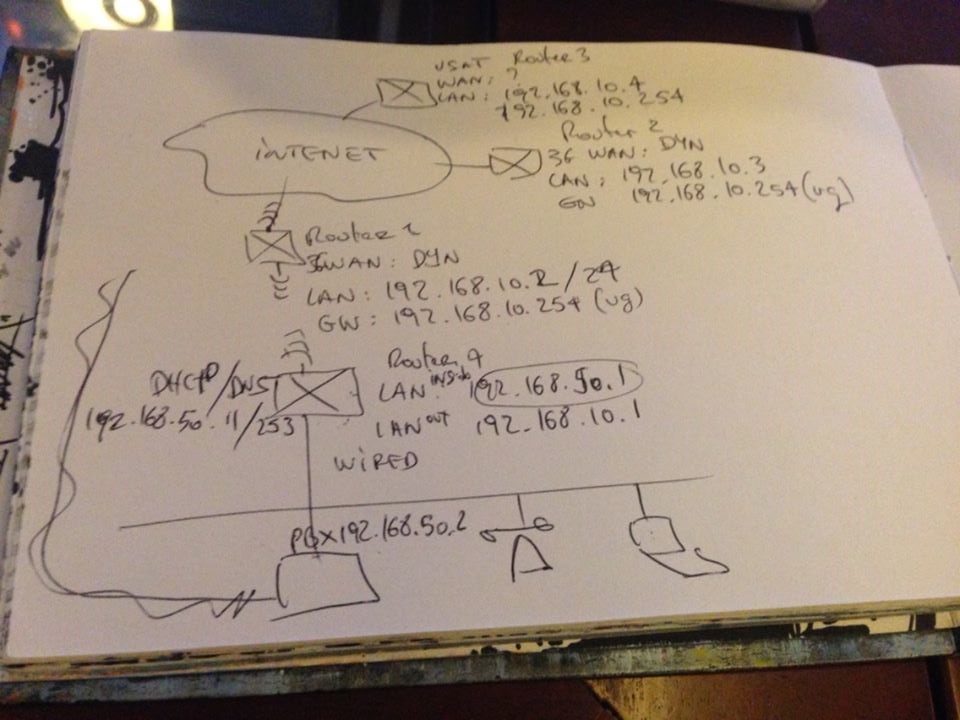 VSAT Router 3
WAN: ?
LAN: 192.168.10.4
192.168.10.254
INTENET
Router 2
3G WAN: DYN
LAN: 192.168.10.3
GW 192.168.10.254 (ug)
Router 1
3G WAN: DYN
LAN: 192.168.10.2/24
GW: 192.168.10.254 (ug)
Router 4
DHCP/DNS
192.168.50.11/253
LAN inside 192.168.50.1
LAN OUT 192.168.10.1
WIRED
PBX 192.168.50.2